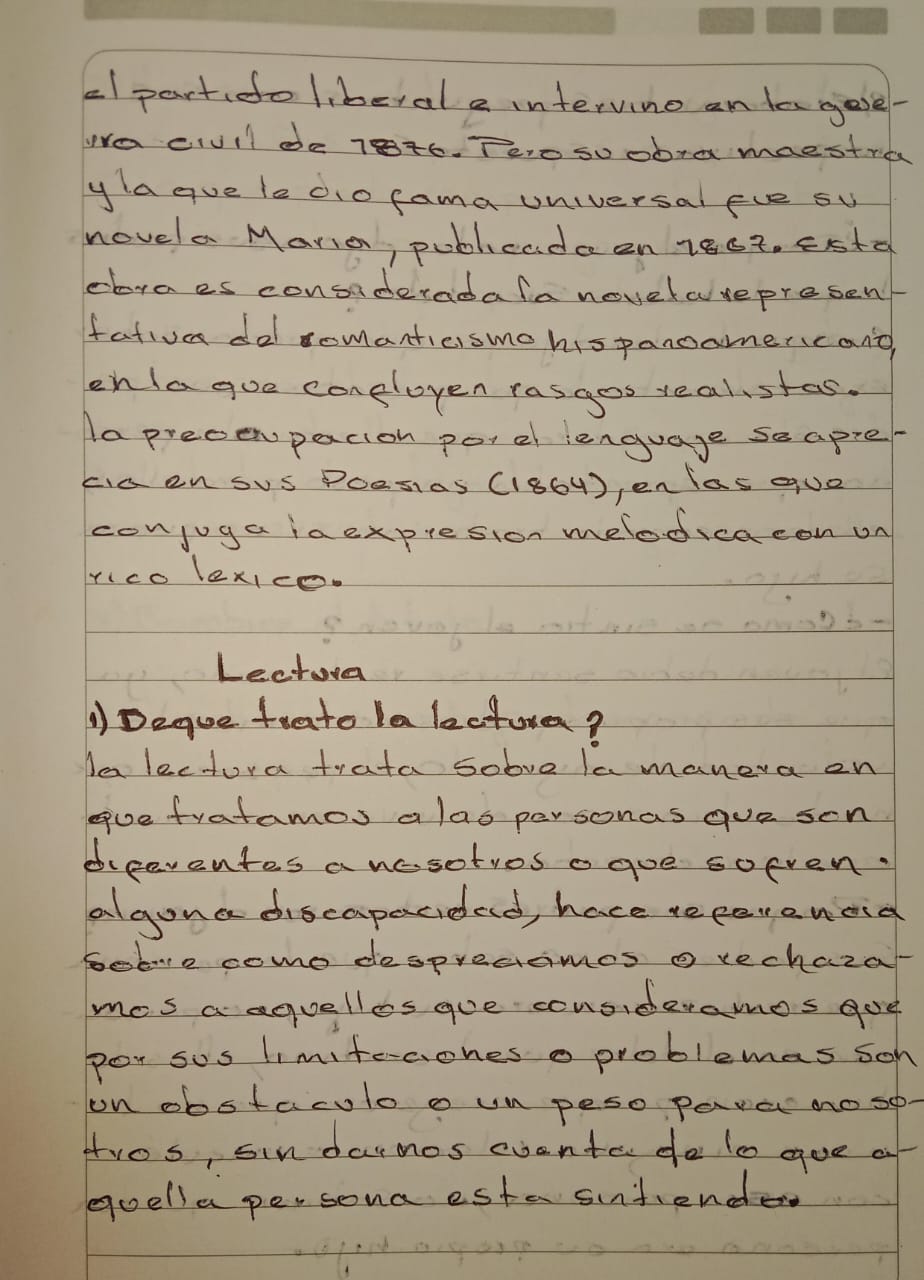 el partido liberal e intervino en la gue-
rra civil de 1876. Pero su obra maestra
y la que le dio fama universal fue su
novela Maria, publicada en 1867. Esta
obra es considerada la novela represen-
tativa del romanticismo hispanoamericano,
en la que confluyen rasgos realistas.
la preocupacion por el lenguaje se apre-
cia en sus Poesias (1864), en las que
conjuga la expresion melodica con un
rico lexico.
Lectura
1) De que trato la lectura?
la lectura trata sobre la manera en
que tratamos a las personas que son
diferentes a nosotros o que sufren.
alguna discapacidad, hace referencia
sobre como despreciamos o rechaza-
mos a aquellos que consideramos que
por sus limitaciones o problemas son
un obstaculo o un peso para noso-
tros, sin darnos cuenta de lo que a-
quella persona esta sintiendo.